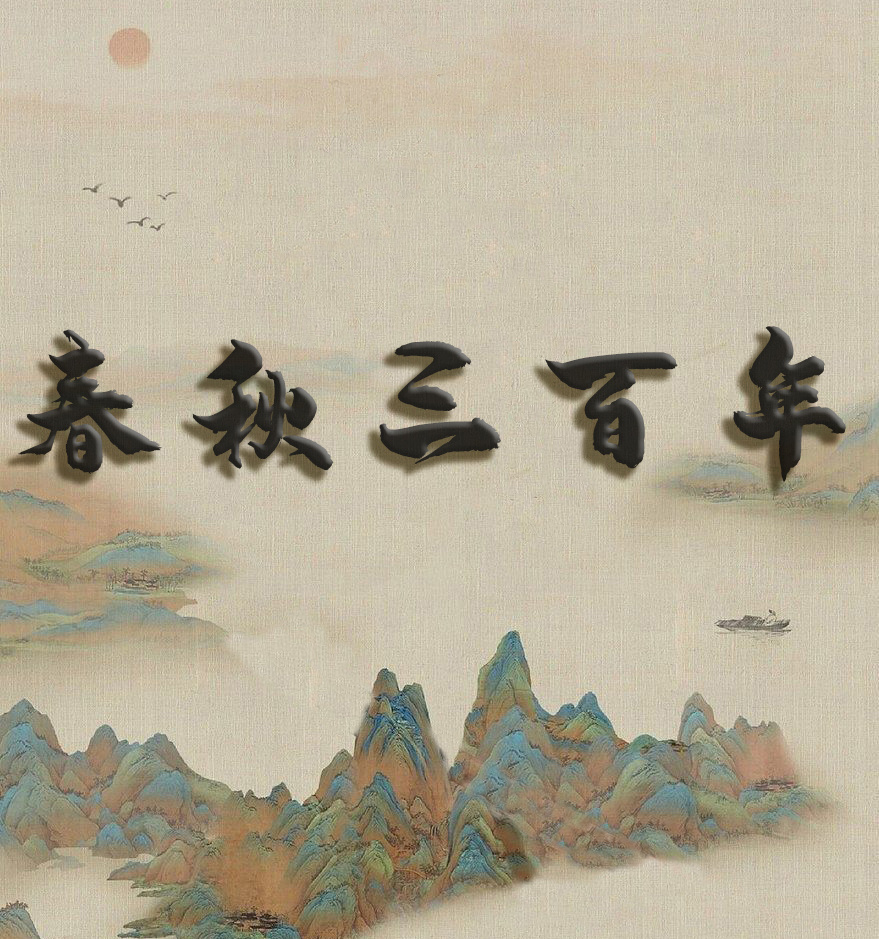 春秋三百年